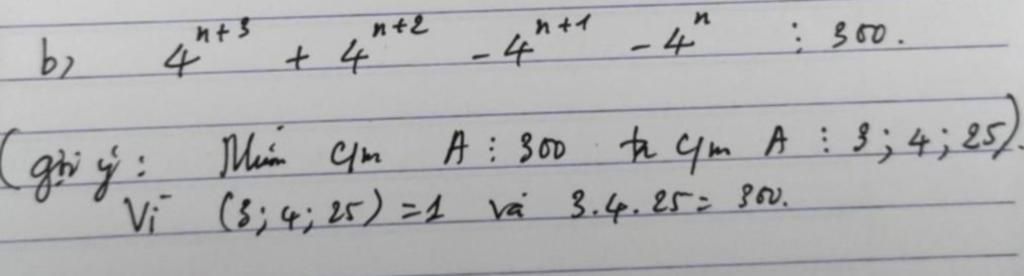 b) 4^{n+3} + 4^{n+2} - 4^{n+1} - 4^n ⋮ 300.
(gợi ý: Muốn c/m A ⋮ 300 ta c/m A ⋮ 3; 4; 25).
Vì (3; 4; 25) = 1 và 3.4.25 = 300.